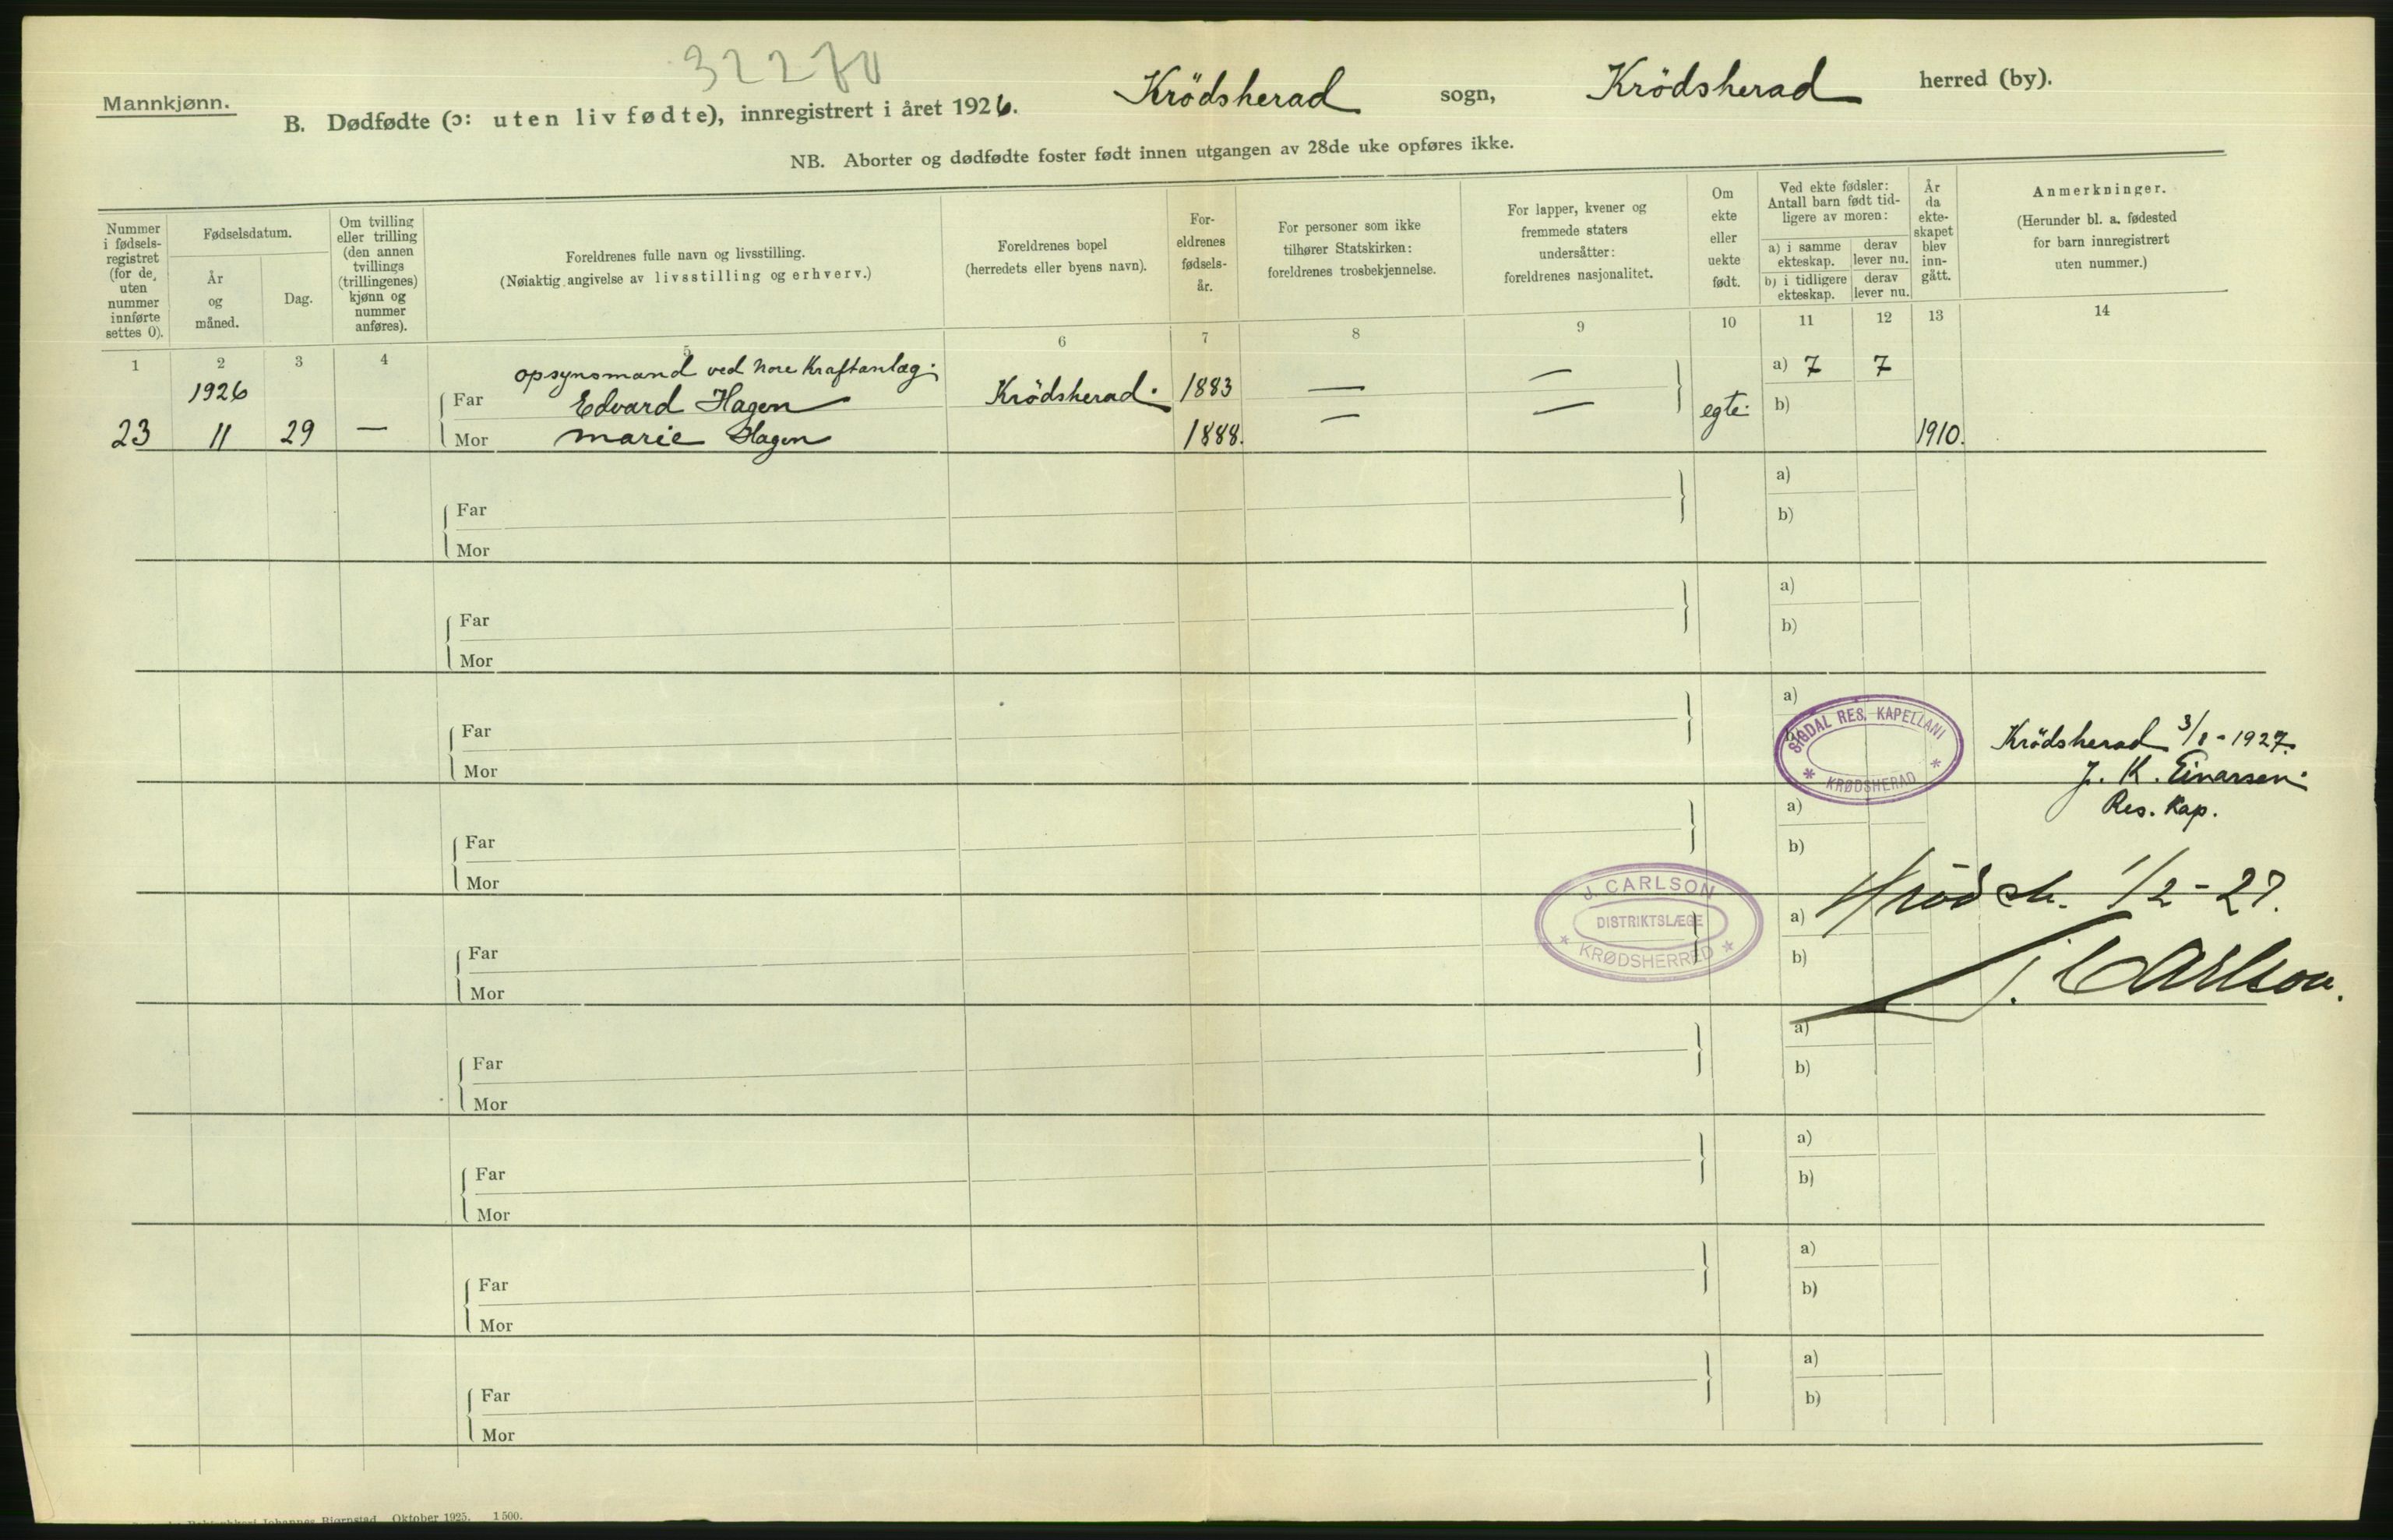 Mannkjønn.
B. Dødfødte (ɔ: uten liv fødte), innregistrert i året 1926. Krödsherad sogn, Krödsherad herred (by).
NB. Aborter og dødfødte foster født innen utgangen av 28de uke opføres ikke.
Nummer i fødsels-registret (for de uten nummer innførte settes 0).
Fødselsdatum.
År og måned.
Dag.
Om tvilling eller trilling (den annen tvillings (trillingenes) kjønn og nummer anføres).
Foreldrenes fulle navn og livsstilling.
(Nøiaktig angivelse av livsstilling og erhverv.)
Foreldrenes bopel
(herredets eller byens navn).
For-eldrenes fødsels-år.
For personer som ikke tilhører Statskirken: foreldrenes trosbekjennelse.
For lapper, kvener og fremmede staters undersåtter: foreldrenes nasjonalitet.
Om ekte eller uekte født.
Ved ekte fødsler: Antall barn født tid-ligere av moren:
a) i samme ekteskap.
derav lever nu.
b) i tidligere ekteskap.
derav lever nu.
År da ekte-skapet blev inn-gått.
Anmerkninger.
(Herunder bl. a. fødested for barn innregistrert uten nummer.)
1 2 3 4 5 6 7 8 9 10 11 12 13 14
opsynsmand ved Nore Kraftanlæg.
1926 Far Edvard Hagen Krödsherad. 1883 — — egte. a) 7 7
b)
23 11 29 — Mor Marie Hagen 1888. — — 1910.
Far a)
Mor b)
Far a)
Mor b)
Far a)
Mor b)
SIGDAL RES. KAPELLANI
* KRØDSHERAD *
Krödsherad 3/1 - 1927.
J. K. Einarsen.
Res. Kap.
Far a)
Mor b)
J. CARLSON
DISTRIKTSLÆGE
* KRØDSHERRED *
Krödsh. 1/2 - 27.
J. Carlson.
Far a)
Mor b)
Far a)
Mor b)
Far a)
Mor b)
Far a)
Mor b)
Far a)
Mor b)
Johannes Bjørnstad. Oktober 1925. 1500.